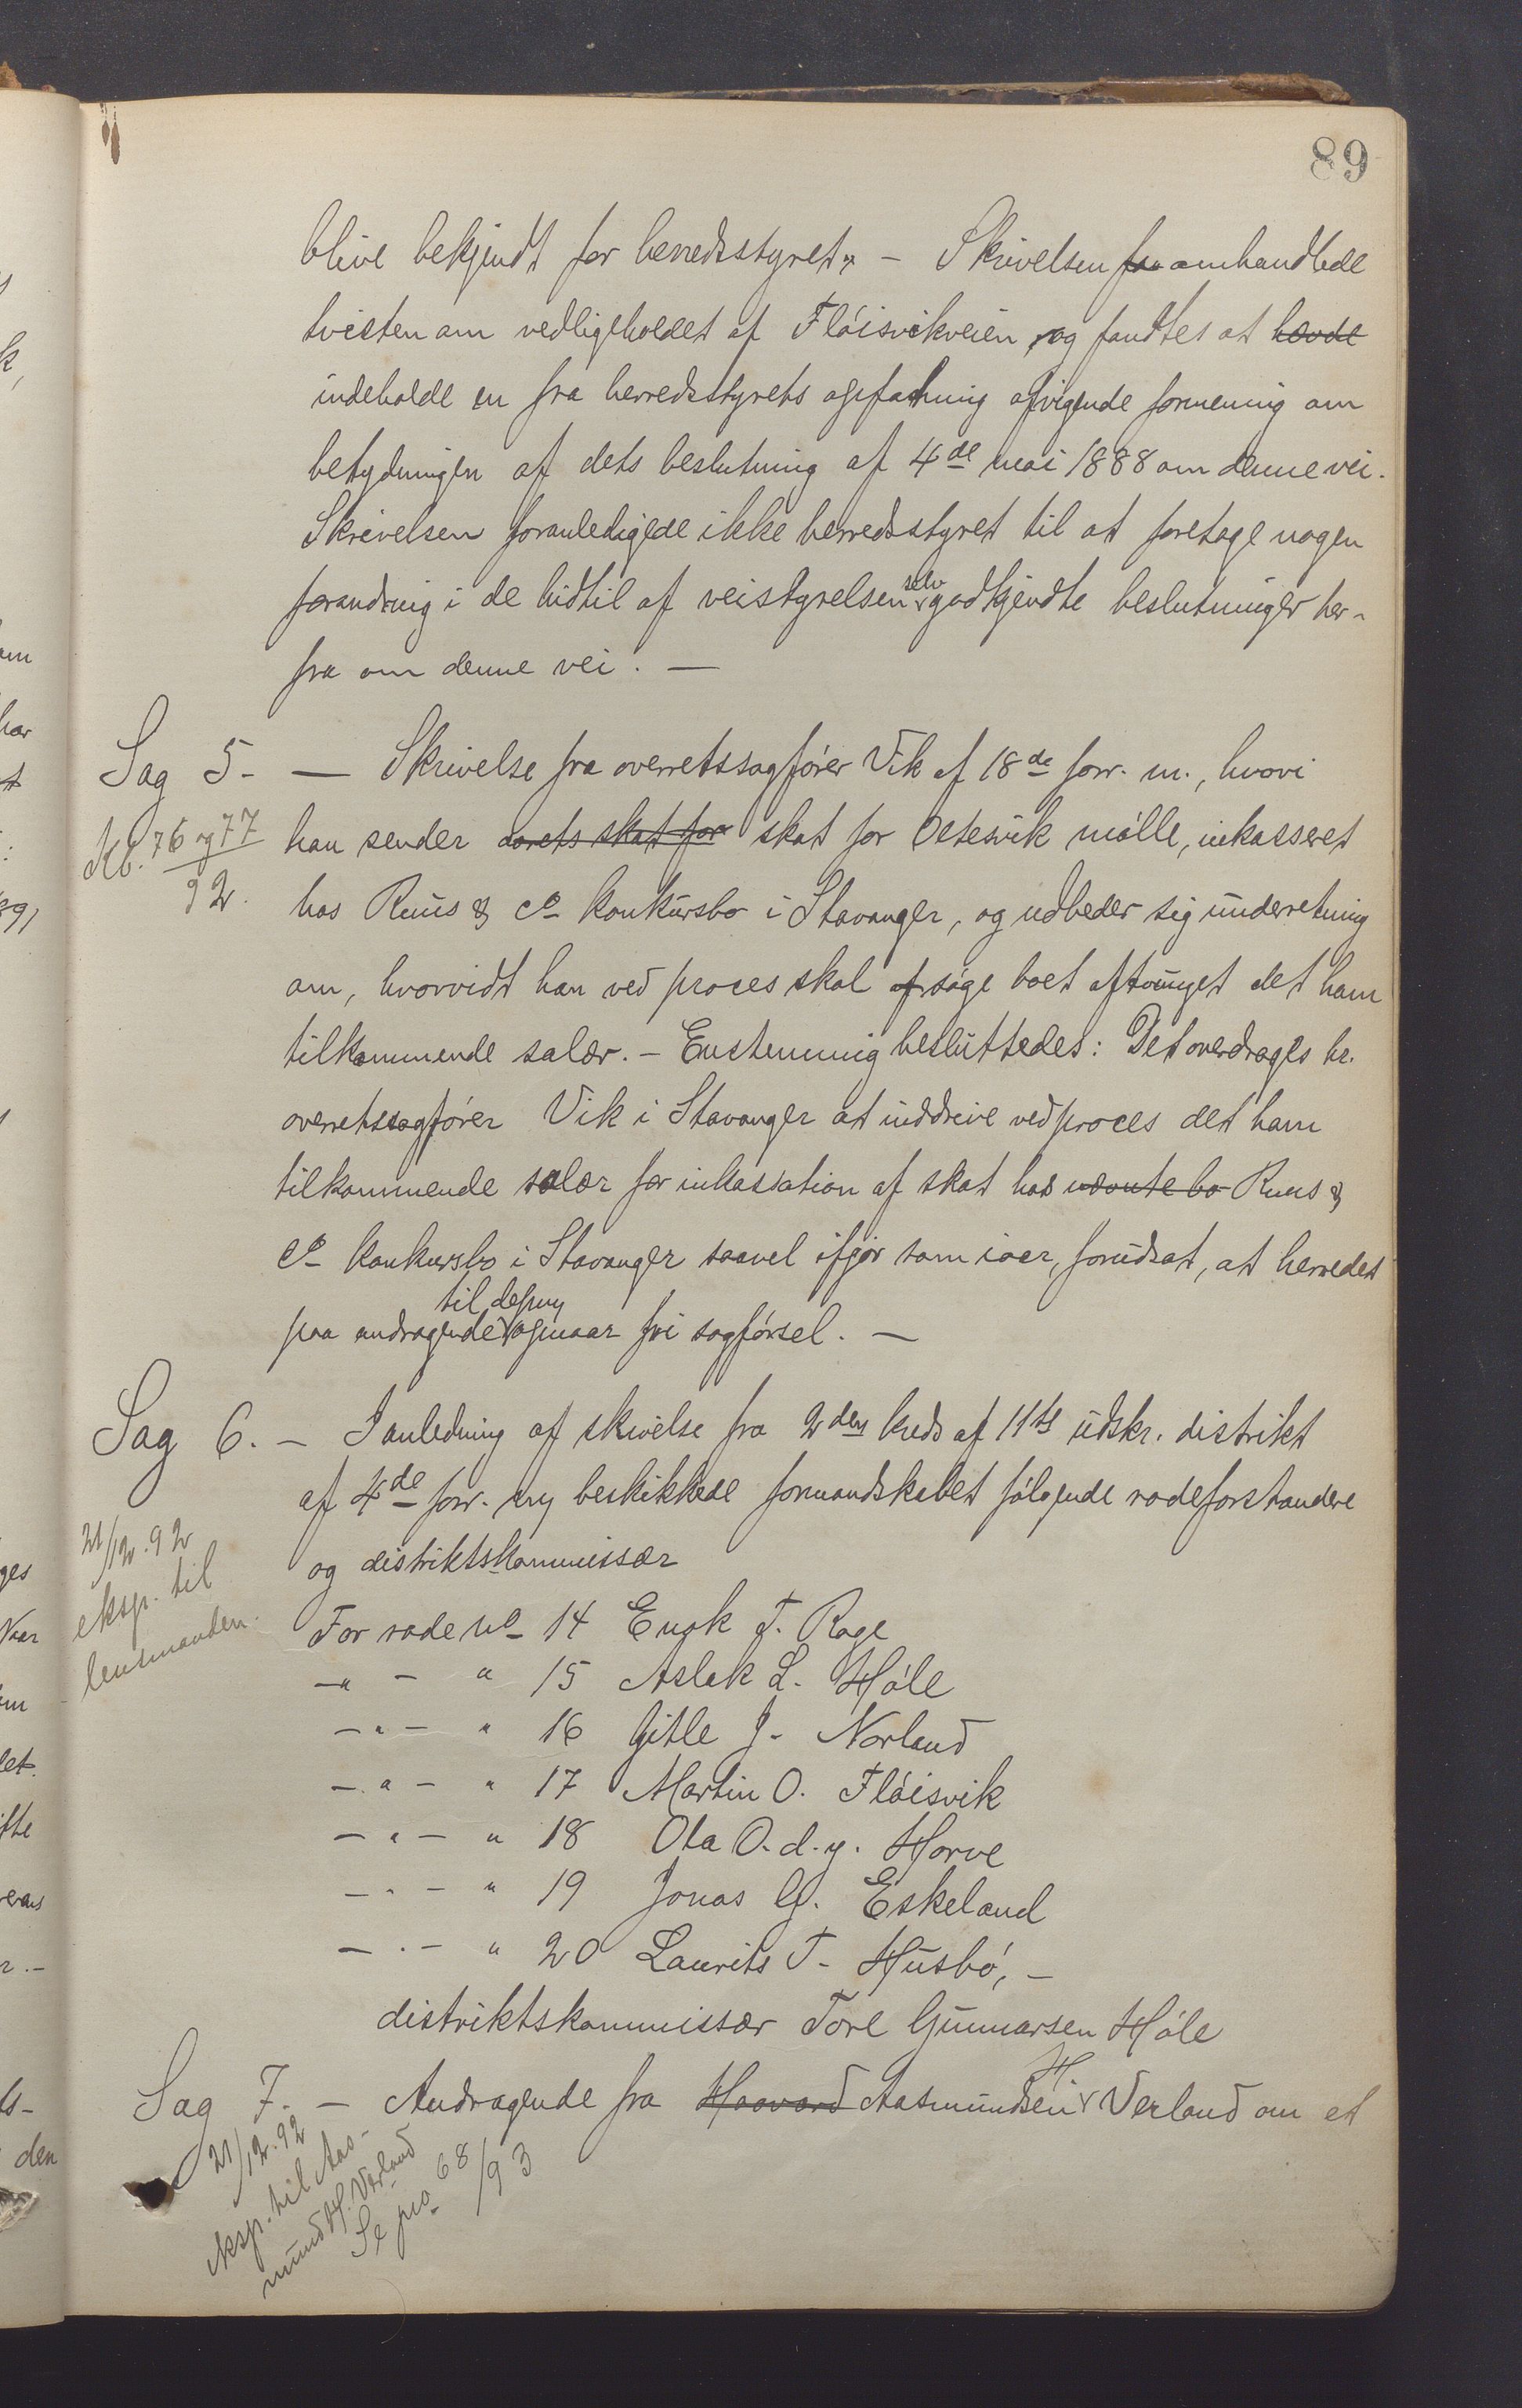 89
blive bekjendt for herredsstyret" - Skrivelsen fra omhandlede
tvisten om vedligeholdet af Flóisvikveien, og fandtes at havde
indeholde en fra herredsstyrets opfatning afvigende formening om
betydningen af dets beslutning af 4de mai 1888 om denne vei.
Skrivelsen foranledigede ikke herredsstyret til at foretage nogen
forandring i de hidtil af veistyrelsen selv godkjendte beslutninger her-
fra om denne vei. —
Sag 5- — Skrivelse fra overretssagfórer Vik af 18de forr. m., hvori
Kb. 76 og 77
92.
han sender aarets skat for skat for Ostesvik mólle, inkasseret
hos Ruus & Co konkursbo i Stavanger, og udbeder sig underretning
om, hvorvidt han ved proces skal søge boet aftvunget det ham
tilkommende salær. - Enstemmig besluttedes: Det overdrages hr.
overretssagfórer Vik i Stavanger at inddrive ved proces det ham
tilkommende salær for inkassation af skat hos nævnte bo Ruus &
Co konkursbo i Stavanger saavel ifjor som iaar, forudsat, at herredet
til depny
paa andragende opnaar fri sagfórsel. —
Sag 6. - I anledning af skrivelse fra 2den kreds af 11te udskr. distrikt
af 4de forr. beskikkede formandskabet fólgende rodeforstandere
og distriktskommissær
21/12.92
eksp. til
lensmanden.
For rode No 14 Enok T. Rage
-"- " 15 Aslak L. Hóle
-"- " 16 Gitle J. Norland
-"- " 17 Martin O. Flóisvik
-"- " 18 Ola O. d.y. Horve
-"- " 19 Jonas G. Eskeland
-"- " 20 Laurits T. Husbó, -
distriktskommissær Tore Gunnarsen Hóle
Sag 7. - Andragende fra Haavard Aasmundsen H Verland om et
21/12.92
eksp. til Aas-
mund H. Varland
Se pro 68/93